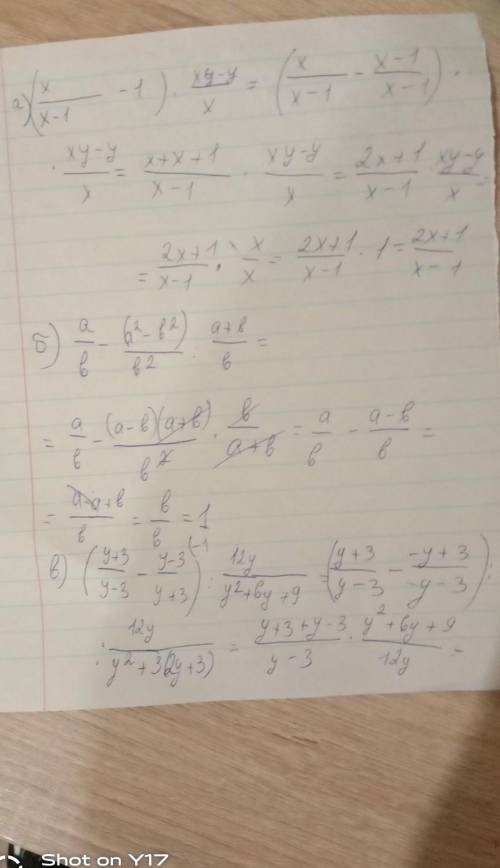 а) (x/(x-1) - 1) · (xy-y)/x = (x/(x-1) - (x-1)/(x-1)) ·
· (xy-y)/x = (x+x+1)/(x-1) · (xy-y)/x = (2x+1)/(x-1) (xy-y)/x
= (2x+1)/(x-1) · x/x = (2x+1)/(x-1) · 1 = (2x+1)/(x-1)
б) a/b - (a²-b²)/b² : (a+b)/b =
= a/b - (a-b)(a+b)/b² · b/(a+b) = a/b - (a-b)/b =
= (a-a+b)/b = b/b = 1
в) ((y+3)/(y-3) - (y-3)/(y+3))(-1 : 12y/(y²+6y+9) = ((y+3)/(y-3) - (-y+3)/(-y-3)) :
: 12y/(y²+3(2y+3)) = (y+3+y-3)/(y-3) · (y²+6y+9)/12y =
Shot on Y17